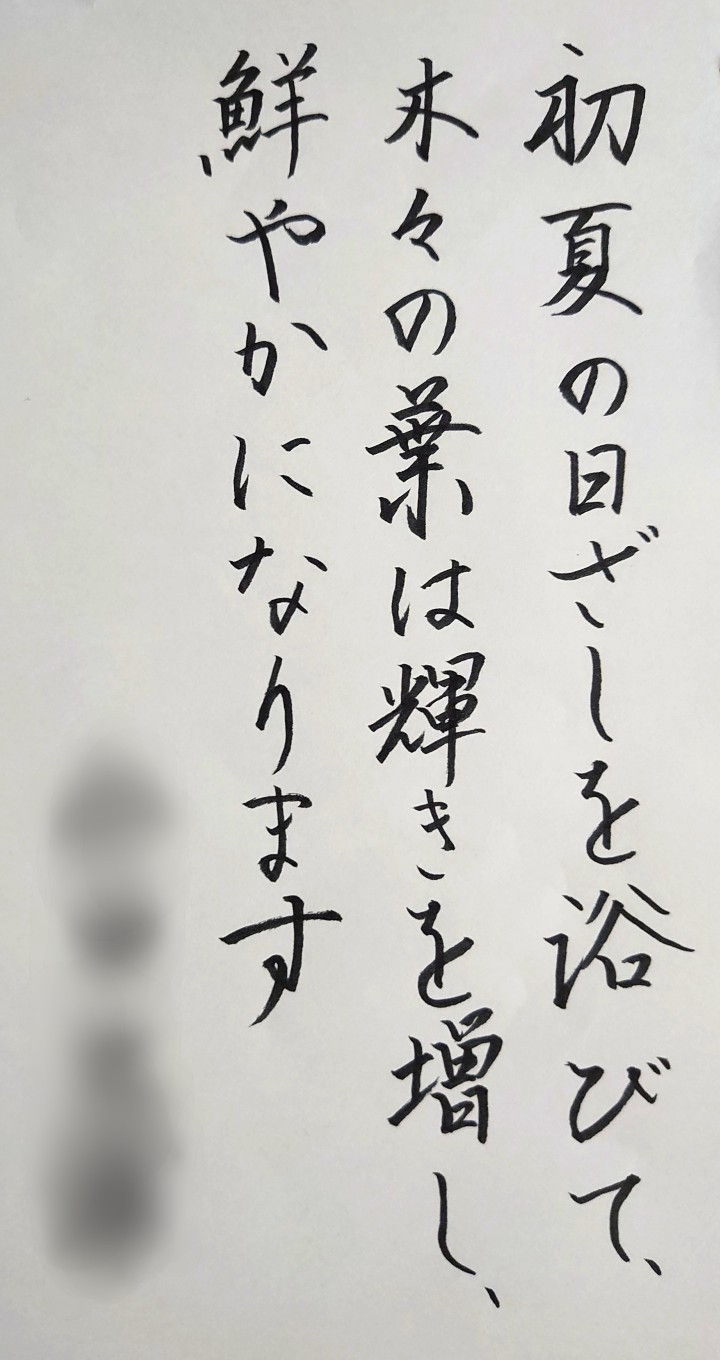 初夏の日ざしを浴びて、
木々の葉は輝きを増し、
鮮やかになります